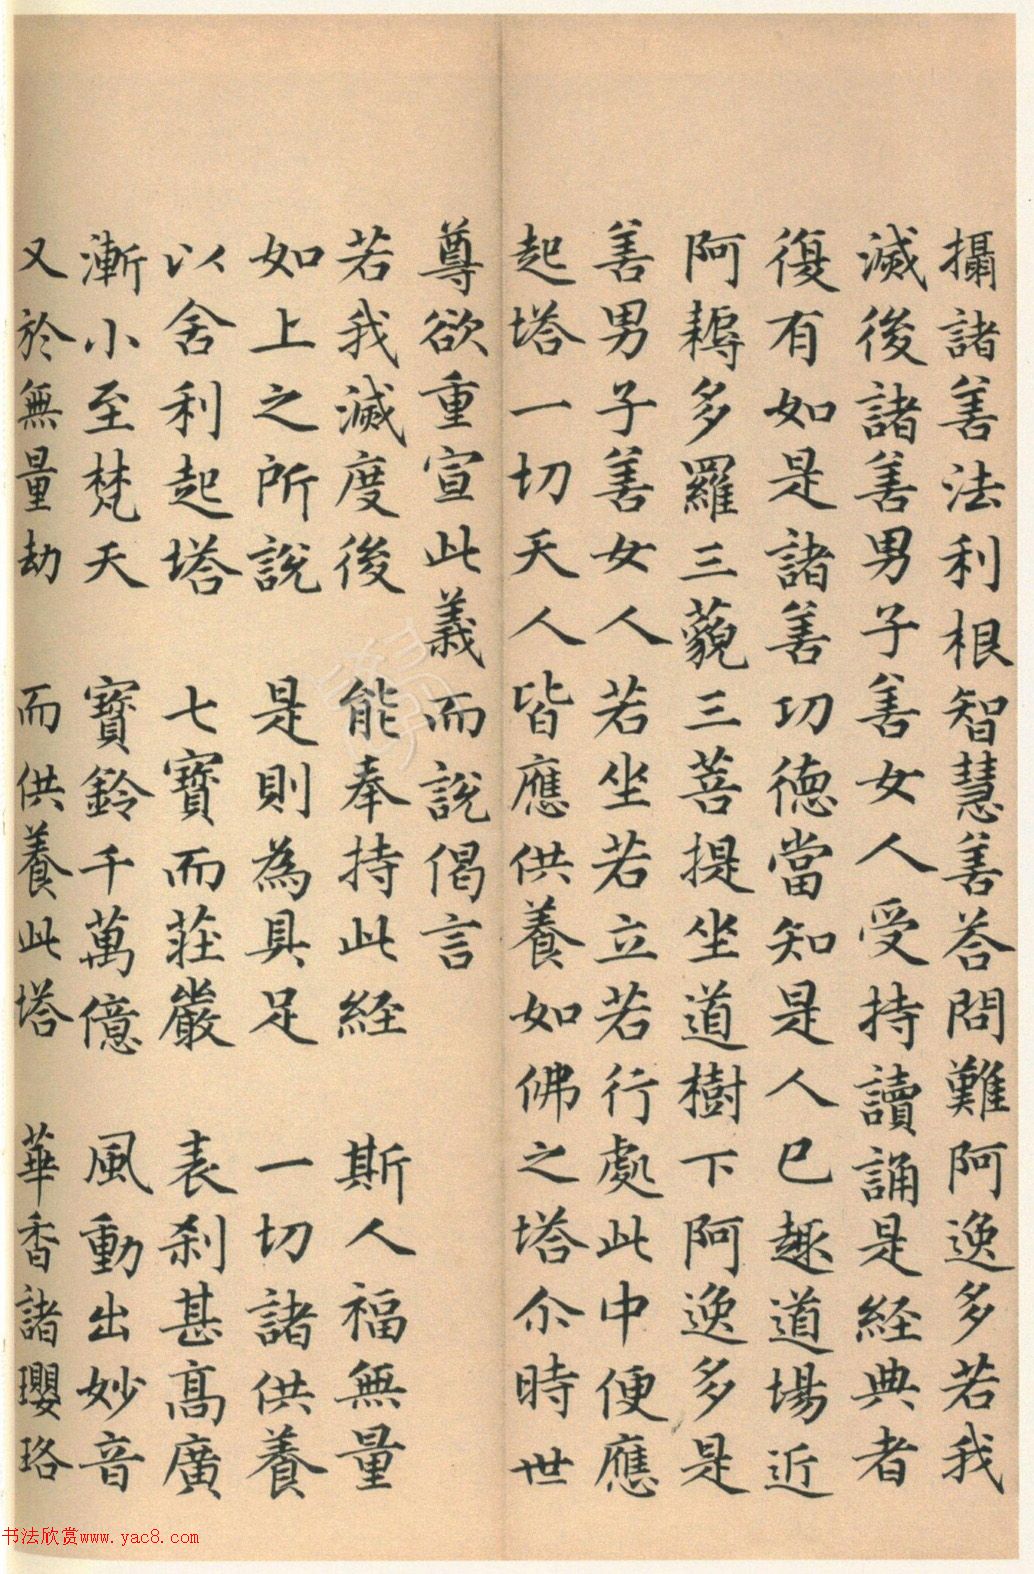 攝諸善法利根智慧善荅問難阿逸多若我
滅後諸善男子善女人受持讀誦是経典者
復有如是諸善功德當知是人已趣道場近
阿耨多羅三藐三菩提坐道樹下阿逸多是
善男子善女人若坐若立若行處此中便應
起塔一切天人皆應供養如佛之塔尒時世
尊欲重宣此義而說偈言
若我滅度後 能奉持此経 斯人福無量
如上之所說 是則為具足 一切諸供養
以舍利起塔 七寶而莊嚴 表刹甚髙廣
漸小至梵天 寶鈴千萬億 風動出妙音
又於無量劫 而供養此塔 華香諸瓔珞
书法欣赏www.yac8.com